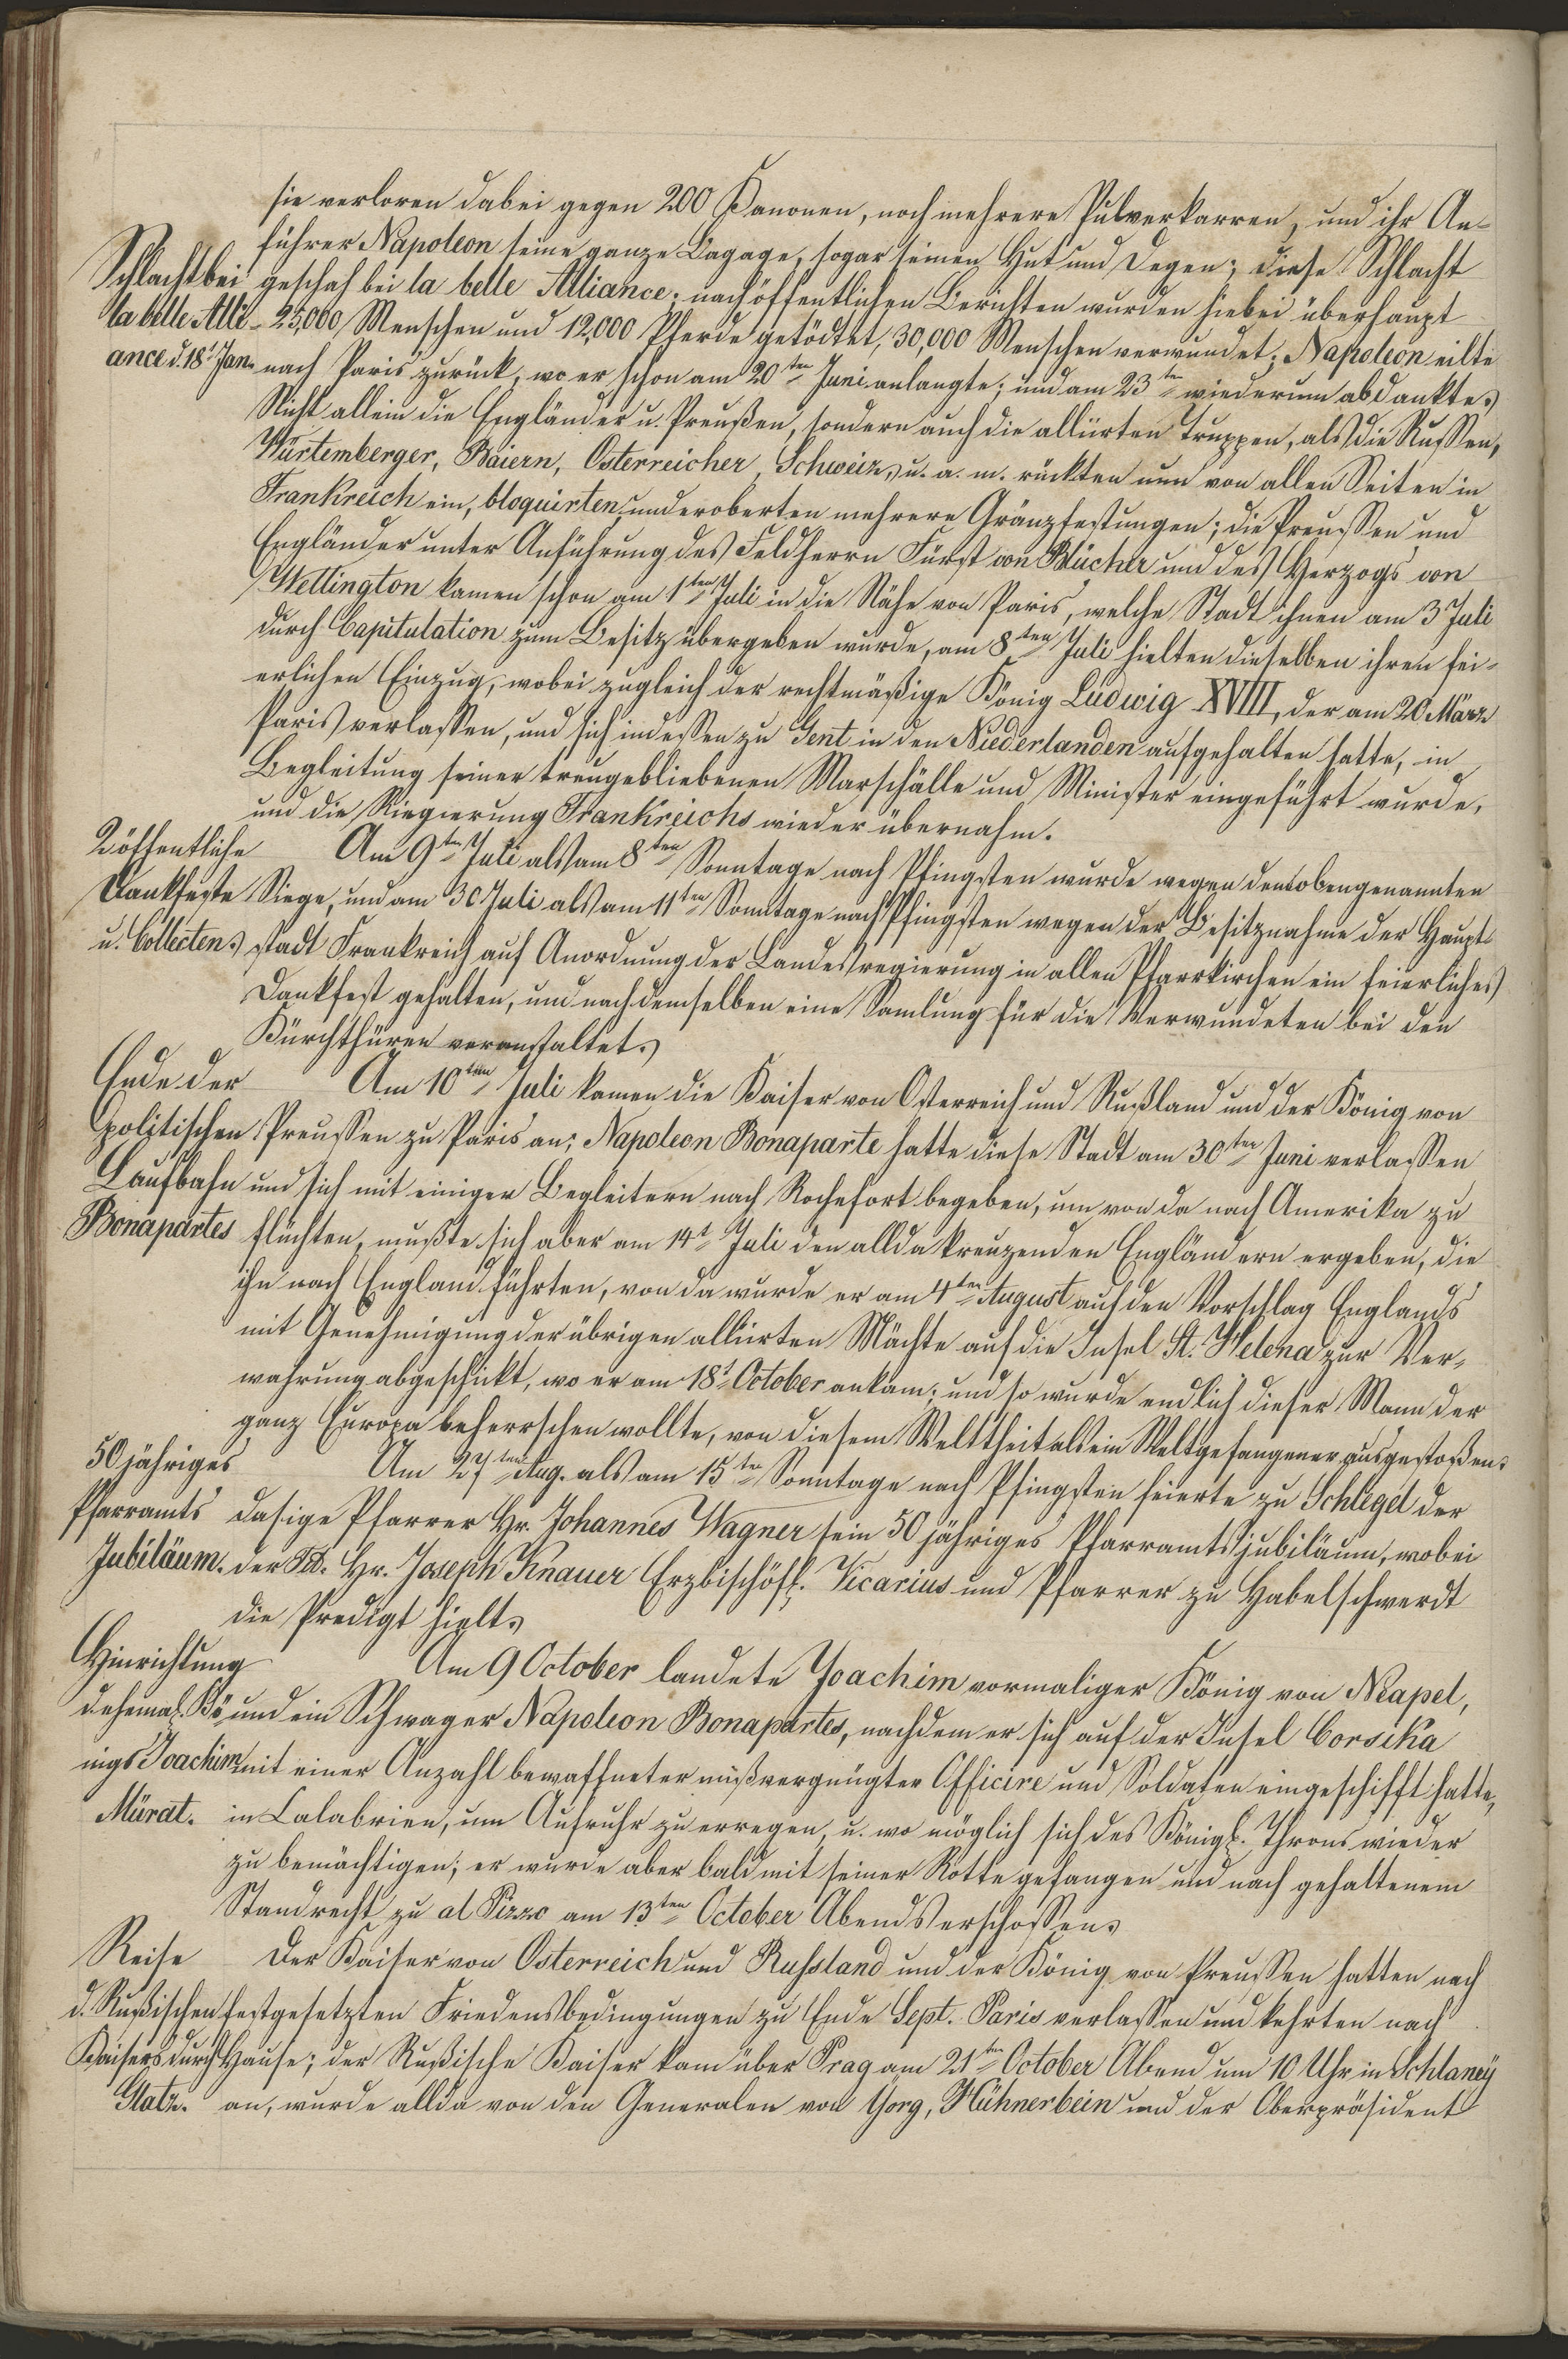 sie verloren dabei gegen 200 Kanonen, noch mehrere Pulverkarren, und ihr An-
führer Napoleon seine ganze Bagage, sogar seinen Hut und Degen; diese Schlacht
Schlacht bei geschah bei la belle Alliance; nach öffentlichen Berichten wurden hiebei überhaupt
la belle Alli- 25,000 Menschen und 12,000 Pferde getödtet, 30,000 Menschen verwundet; Napoleon eilte
ance d. 18t Jan. nach Paris zurück, wo er schon am 20ten Juni anlangte; und am 23ten wiederum abdankte.
Nicht allein die Engländer u. Preußen, sondern auch die alliirten Truppen, als die Russen,
Würtemberger, Baiern, Österreicher, Schweiz, u. a. m. rückten nun von allen Seiten in
Frankreich ein, bloquirten und eroberten mehrere Gränzfestungen; die Preussen und
Engländer unter Anführung des Feldherrn Fürst von Blücher und des Herzogs von
Wellington kamen schon am 1ten Juli in die Nähe von Paris, welche Stadt ihnen am 3 Juli
durch Capitulation zum Besitz übergeben wurde, am 8ten Juli hielten dieselben ihren fei-
erlichen Einzug, wobei zugleich der rechtmäßige König Ludwig XVIII, der am 20 März
Paris verlassen, und sich indessen zu Gent in den Niederlanden aufgehalten hatte, in
Begleitung seiner treugebliebenen Marschälle und Minister eingeführt wurde,
und die Regierung Frankreichs wieder übernahm.
2 öffentliche Am 9ten Juli als am 8ten Sonntage nach Pfingsten wurde wegen dem obengenannten
Dankfeste Siege, und am 30 Juli als am 11ten Sonntage nach Pfingsten wegen der Besitznahme der Haupt-
u. Collecten. stadt Frankreich auf Anordnung der Landesregierung in allen Pfarrkirchen ein feierliches
Dankfest gehalten, und nach demselben eine Samlung für die Verwundeten bei den
Kürchthüren veranstaltet.
Ende der Am 10ten Juli kamen die Kaiser von Österreich und Rußland und der König von
politischen Preussen zu Paris an; Napoleon Bonaparte hatte diese Stadt am 30ten Juni verlassen
Laufbahn und sich mit einigen Begleitern nach Rochefort begeben, um von da nach Amerika zu
Bonapartes flüchten, mußte sich aber am 14t Juli den allda kreuzenden Engländern ergeben, die
ihn nach England führten, von da wurde er am 4ten August auf den Vorschlag Englands
mit Genehmigung der übrigen alliirten Mächte auf die Insel St. Helena zur Ver-
wahrung abgeschickt, wo er am 18t October ankam; und so wurde endlich dieser Mann der
ganz Europa beherrschen wollte, von diesem Welttheil als ein Weltgefangener ausgestoßen.
50 jähriges Am 27ten Aug. als am 15ten Sonntage nach Pfingsten feierte zu Schlegel der
Pfarramts dasige Pfarrer Hr. Johannes Wagner sein 50 jähriges Pfarramtsjubiläum, wobei
Jubiläum. der Tit. Hr. Joseph Knauer Erzbischöfl. Vicarius und Pfarrer zu Habelschwerdt
die Predigt hielt.
Hinrichtung Am 9 October landete Joachim vormaliger König von Neapel,
d. ehemal. Kö- und ein Schwager Napoleon Bonapartes, nachdem er sich auf der Insel Corsika
nigs Joachim mit einer Anzahl bewaffneter mißvergnügter Officire und Soldaten eingeschifft hatte,
Mürat. in Calabrien, um Aufruhr zu erregen, u. wo möglich sich des Königl. Throns wieder
zu bemächtigen; er wurde aber bald mit seiner Rotte gefangen und nach gehaltenem
Standrecht zu al Pizzo am 13ten October Abends erschossen.
Reise Der Kaiser von Österreich und Russland und der König von Preussen hatten nach
d. Rußischen festgesetzten Friedensbedingungen zu Ende Sept. Paris verlassen und kehrten nach
Kaisers durch Hause; der Rußische Kaiser kam über Prag am 21ten October Abend um 10 Uhr in Schlaney
Glatz. an, wurde allda von den Generalen von Yorg, Hühnerbein und der Oberpräsident